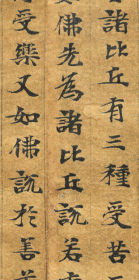 諸比丘有三種受苦
如佛先為諸比丘說若
受樂又如佛說於善